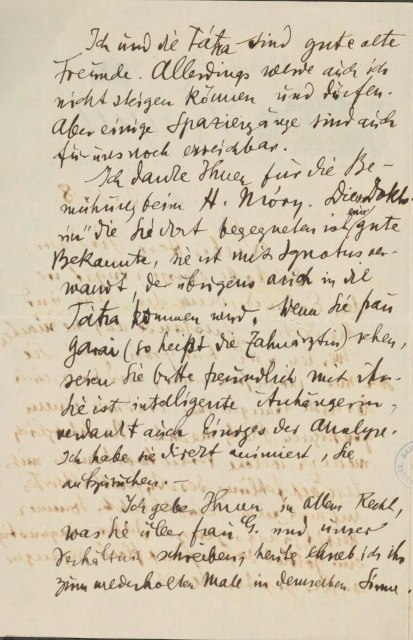 Ich und die Tátra sind gute alte
Freunde. Allerdings werde auch ich
nicht steigen können und dürfen.
Aber einige Spaziergänge sind auch
für uns noch erreichbar.
Ich danke Ihnen für die Be-
mühung beim H. Móry. Diese Dokto-
rin die Sie dort begegneten ist eine gute
Bekannte, sie ist mit Ignotus ver-
wandt, der übrigens auch in die
Tátra kommen wird. Wenn Sie frau
Garai (so heißt die Zahnärztin) sehen,
seien Sie bitte freundlich mit ihr.
Sie ist intelligente Anhängerin,
verdankt auch Einiges der Analyse.
Ich habe sie direkt animiert, Sie
aufzusuchen. —
Ich gebe Ihnen in Allem Recht,
was Sie über frau G. und unser
Verhältnis schreiben, heute schrieb ich ihr
zum wiederholten Male in demselben Sinne.